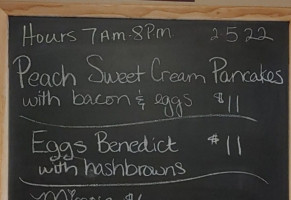 Hours 7AM-8PM 2-5-22
Peach Sweet Cream Pancakes
with bacon & eggs $11
Eggs Benedict $11
with hashbrowns